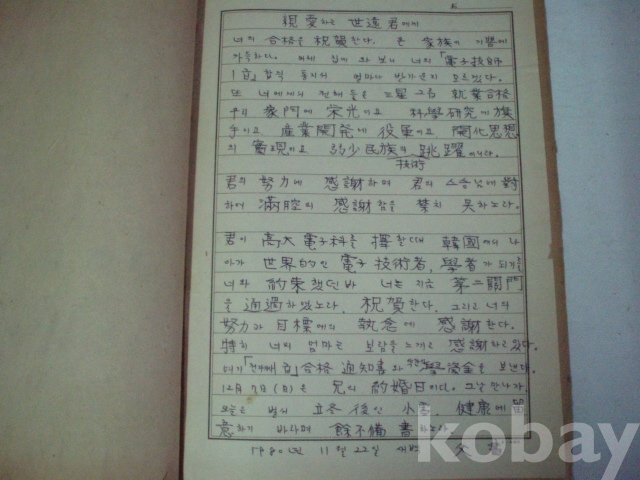 親愛하는 世遠君에게
너의 合格을 祝賀한다. 온 家族이 기쁨에
가득하다. 어제 집에 와 보니 너의 「電子技師
1급」합격 통지서 얼마나 반가운지 모르겠다.
또 너에게서 전해 들은 三星그룹 就業合格
우리 家門에 栄光이요 科學研究에 旗
手이요 産業開発에 役軍이요 開化思想
의 實現이요 弱少民族의 技術 跳躍이니라.
君의 努力에 感謝하며 君의 스승님에 對
하여 滿腔의 感謝함을 禁치 못하노라.
君이 高大 電子科를 擇할때 韓國에서 나
아가 世界的인 電子 技術者, 學者가 되기를
너와 約束했던바 너는 지금 第二關門
을 通過하였노라. 祝賀한다. 그리고 너의
努力과 目標에의 執念에 感謝한다.
特히 너의 엄마는 보람을 느끼고 感謝하고 있다.
여기「 合格 通知書와 學資金을 보낸다.
12月 7日(日)은 兄의 約婚日이다. 그날 만나자.
오늘은 벌써 立冬 後인 小雪. 健康에 留
意하기 바라며 餘不備 書하노라
1980년 11월 22일 새벽 父
kobay